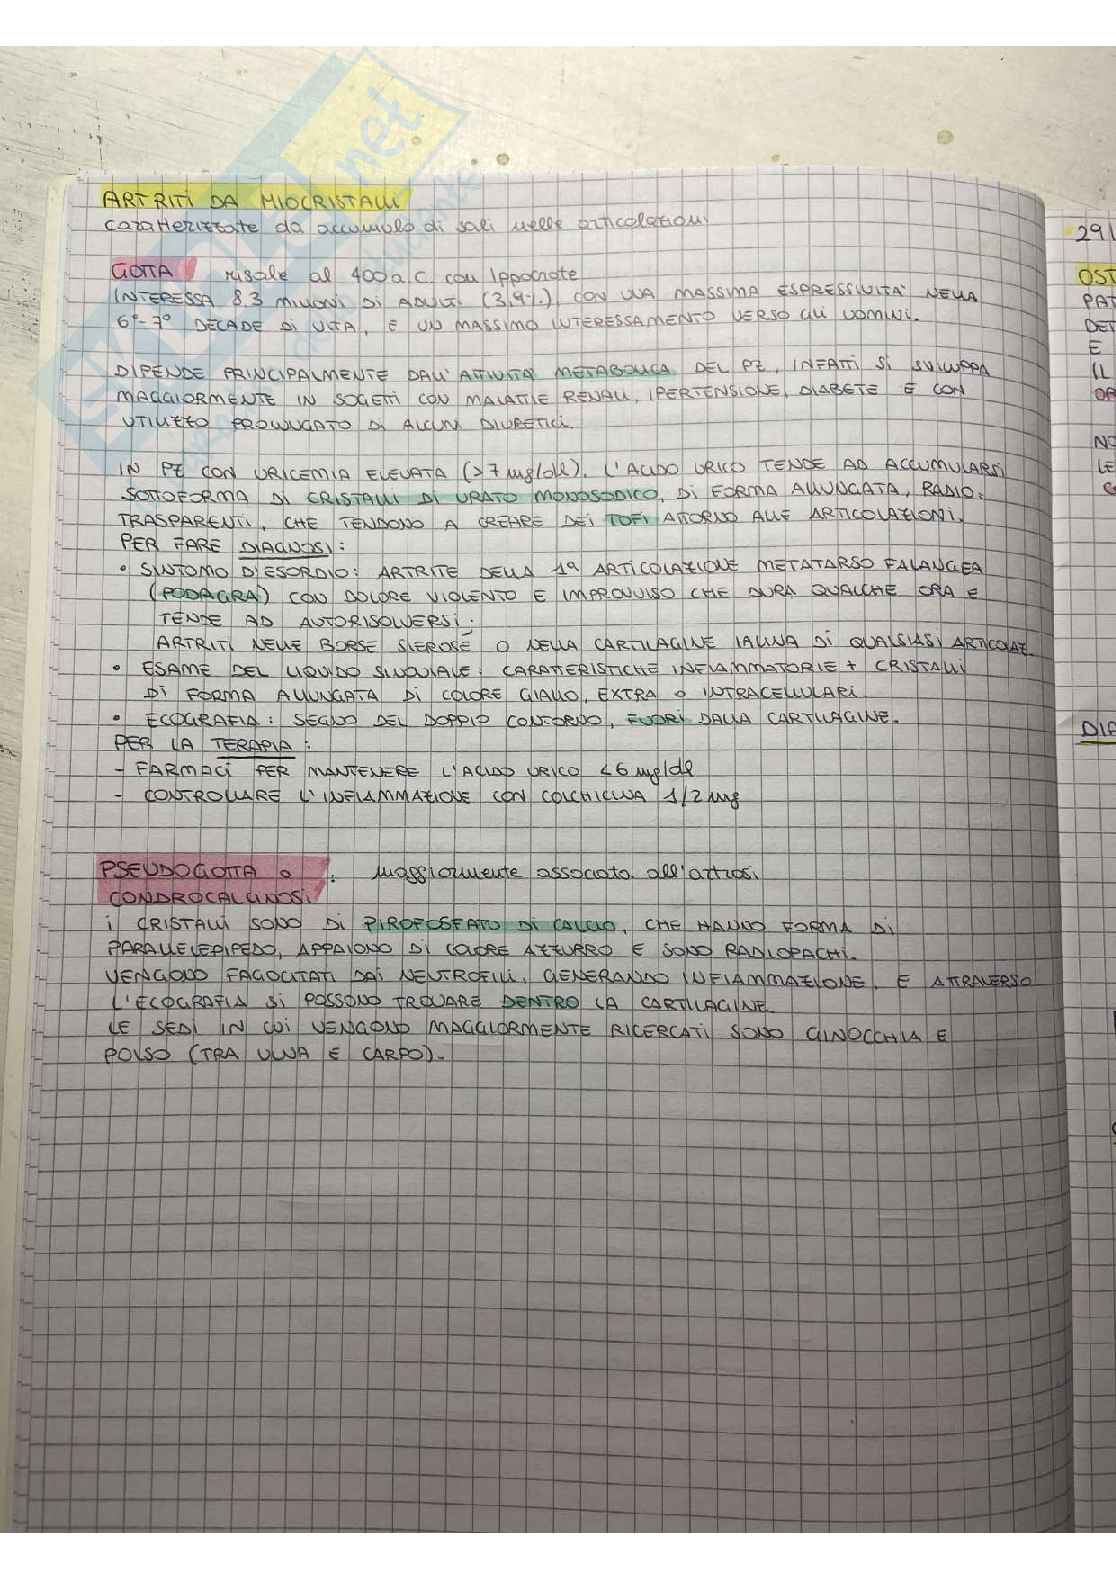 ARTRITI DA MIOCRISTALLI
caratterizzate da accumulo di sali nelle articolazioni
GOTTA risale al 400 a.C. con Ippocrate
INTERESSA 8.3 MILIONI DI ADULTI (3,9%), CON UNA MASSIMA ESPRESSIVITA' NELLA
6°-7° DECADE DI VITA, E UN MASSIMO INTERESSAMENTO VERSO GLI UOMINI.
DIPENDE PRINCIPALMENTE DALL'ATTIVITÀ METABOLICA DEL PZ, INFATTI SI SVILUPPA
MAGGIORMENTE IN SOGETTI CON MALATTIE RENALI, IPERTENSIONE, DIABETE E CON
UTILIZZO PROLUNGATO DI ALCUNI DIURETICI.
IN PZ CON URICEMIA ELEVATA (>7 mg/dl), L'ACIDO URICO TENDE AD ACCUMULARSI
SOTTOFORMA DI CRISTALLI DI URATO MONOSODICO, DI FORMA ALLUNGATA, RADIO-
TRASPARENTI, CHE TENDONO A CREARE DEI TOFI ATTORNO ALLE ARTICOLAZIONI.
PER FARE DIAGNOSI:
• SINTOMO D'ESORDIO: ARTRITE DELLA 1ª ARTICOLAZIONE METATARSO FALANGEA
(PODAGRA) CON DOLORE VIOLENTO E IMPROVVISO CHE DURA QUALCHE ORA E
TENDE AD AUTORISOLVERSI.
ARTRITI NELLE BORSE SIEROSE O NELLA CARTILAGINE IALINA DI QUALSIASI ARTICOLAZ.
• ESAME DEL LIQUIDO SINOVIALE: CARATTERISTICHE INFIAMMATORIE + CRISTALLI
DI FORMA ALLUNGATA DI COLORE GIALLO, EXTRA O INTRACELLULARI
• ECOGRAFIA: SEGNO DEL DOPPIO CONTORNO, FUORI DALLA CARTILAGINE.
PER LA TERAPIA:
- FARMACI PER MANTENERE L'ACIDO URICO <6 mg/dl
- CONTROLLARE L'INFIAMMAZIONE CON COLCHICINA 1/2 mg
PSEUDOGOTTA O : maggiormente associata all'artrosi
CONDROCALCINOSI
I CRISTALLI SONO DI PIROFOSFATO DI CALCIO, CHE HANNO FORMA DI
PARALLELEPIPEDO, APPAIONO DI COLORE AZZURRO E SONO RADIOPACHI.
VENGONO FAGOCITATI DAI NEUTROFILI, GENERANDO INFIAMMAZIONE, E ATTRAVERSO
L'ECOGRAFIA SI POSSONO TROVARE DENTRO LA CARTILAGINE.
LE SEDI IN CUI VENGONO MAGGIORMENTE RICERCATI SONO GINOCCHIA E
POLSO (TRA ULNA E CARPO).
291
OST
PAT
DET
E
IL
NO
LE
DIA